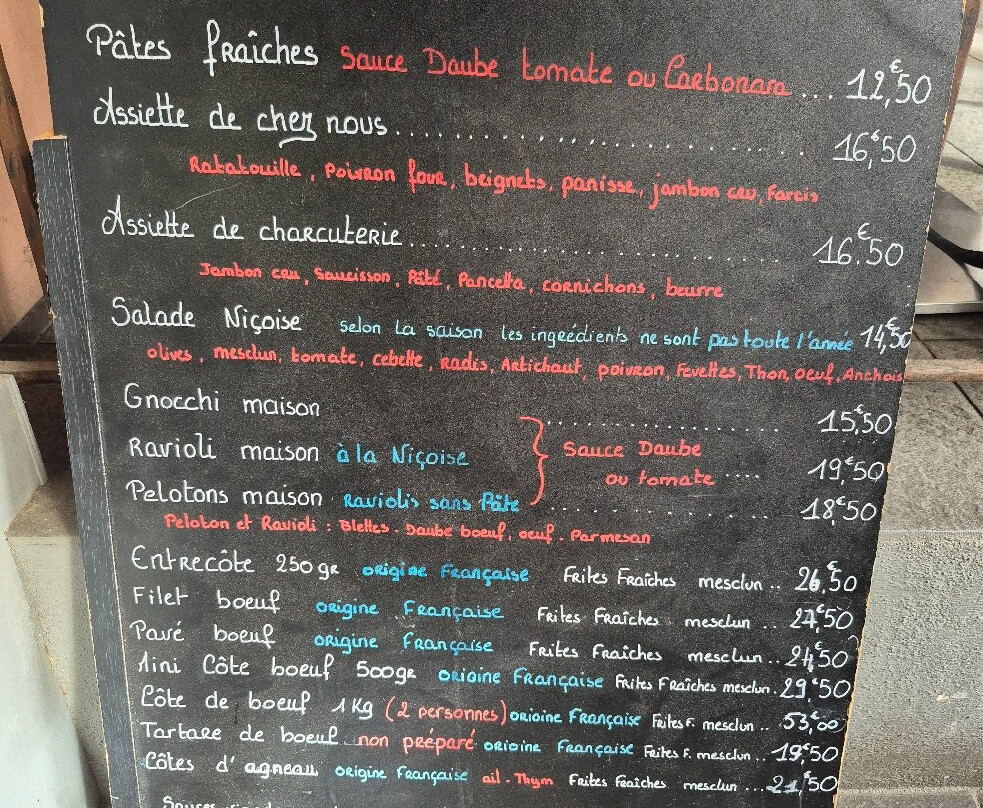 Pâtes fraîches Sauce Daube tomate ou Carbonara ... 12,€50
Assiette de chez nous .......... 16,€50
Ratatouille, poivron four, beignets, panisse, jambon cru, Farcis
Assiette de charcuterie .......... 16.€50
Jambon cru, Saucisson, Pâté, Pancetta, cornichons, beurre
Salade Niçoise selon la saison les ingrédients ne sont pas toute l'année 14,€50
olives, mesclun, tomate, cebette, radis, Artichaut, poivron, Fevettes, Thon, oeuf, Anchois
Gnocchi maison .......... 15,€50
Ravioli maison à la Niçoise } Sauce Daube
ou tomate .... 19,€50
Pelotons maison Raviolis sans Pâte .......... 18,€50
Peloton et Ravioli : Blettes. Daube boeuf, oeuf. Parmesan
Entrecôte 250gr origine Française Frites Fraîches mesclun .. 26,€50
Filet boeuf origine Française Frites Fraîches mesclun .. 27,€50
Pavé boeuf origine Française Frites Fraîches mesclun .. 24,€50
Mini Côte boeuf 500gr origine Française Frites Fraîches mesclun . 29,€50
Côte de boeuf 1Kg (2 personnes) origine Française Frites F. mesclun .. 53,€00
Tartare de boeuf non préparé origine Française Frites F. mesclun ... 19,€50
Côtes d'agneau origine Française ail - Thym Frites Fraîches mesclun ... 21,€50